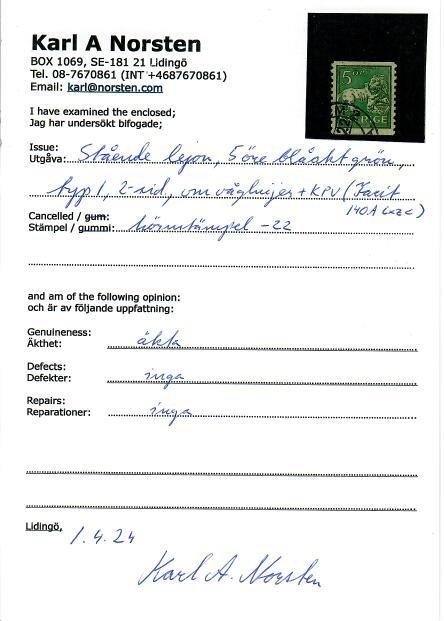 Karl A Norsten
BOX 1069, SE-181 21 Lidingö
Tel. 08-7670861 (INT +4687670861)
Email: karl@norsten.com
5 ÖRE
SVERIGE
I have examined the enclosed;
Jag har undersökt bifogade;
Issue:
Utgåva: Stående lejon, 5 öre blåakt grön,
typ 1, 2-sid, vm våglinjer + KPV (Facit
140A cxz)
Cancelled / gum:
Stämpel / gummi: hörnstämpel -22
and am of the following opinion:
och är av följande uppfattning:
Genuineness:
Äkthet: äkta
Defects:
Defekter: inga
Repairs:
Reparationer: inga
Lidingö, 1.4.24
Karl A. Norsten